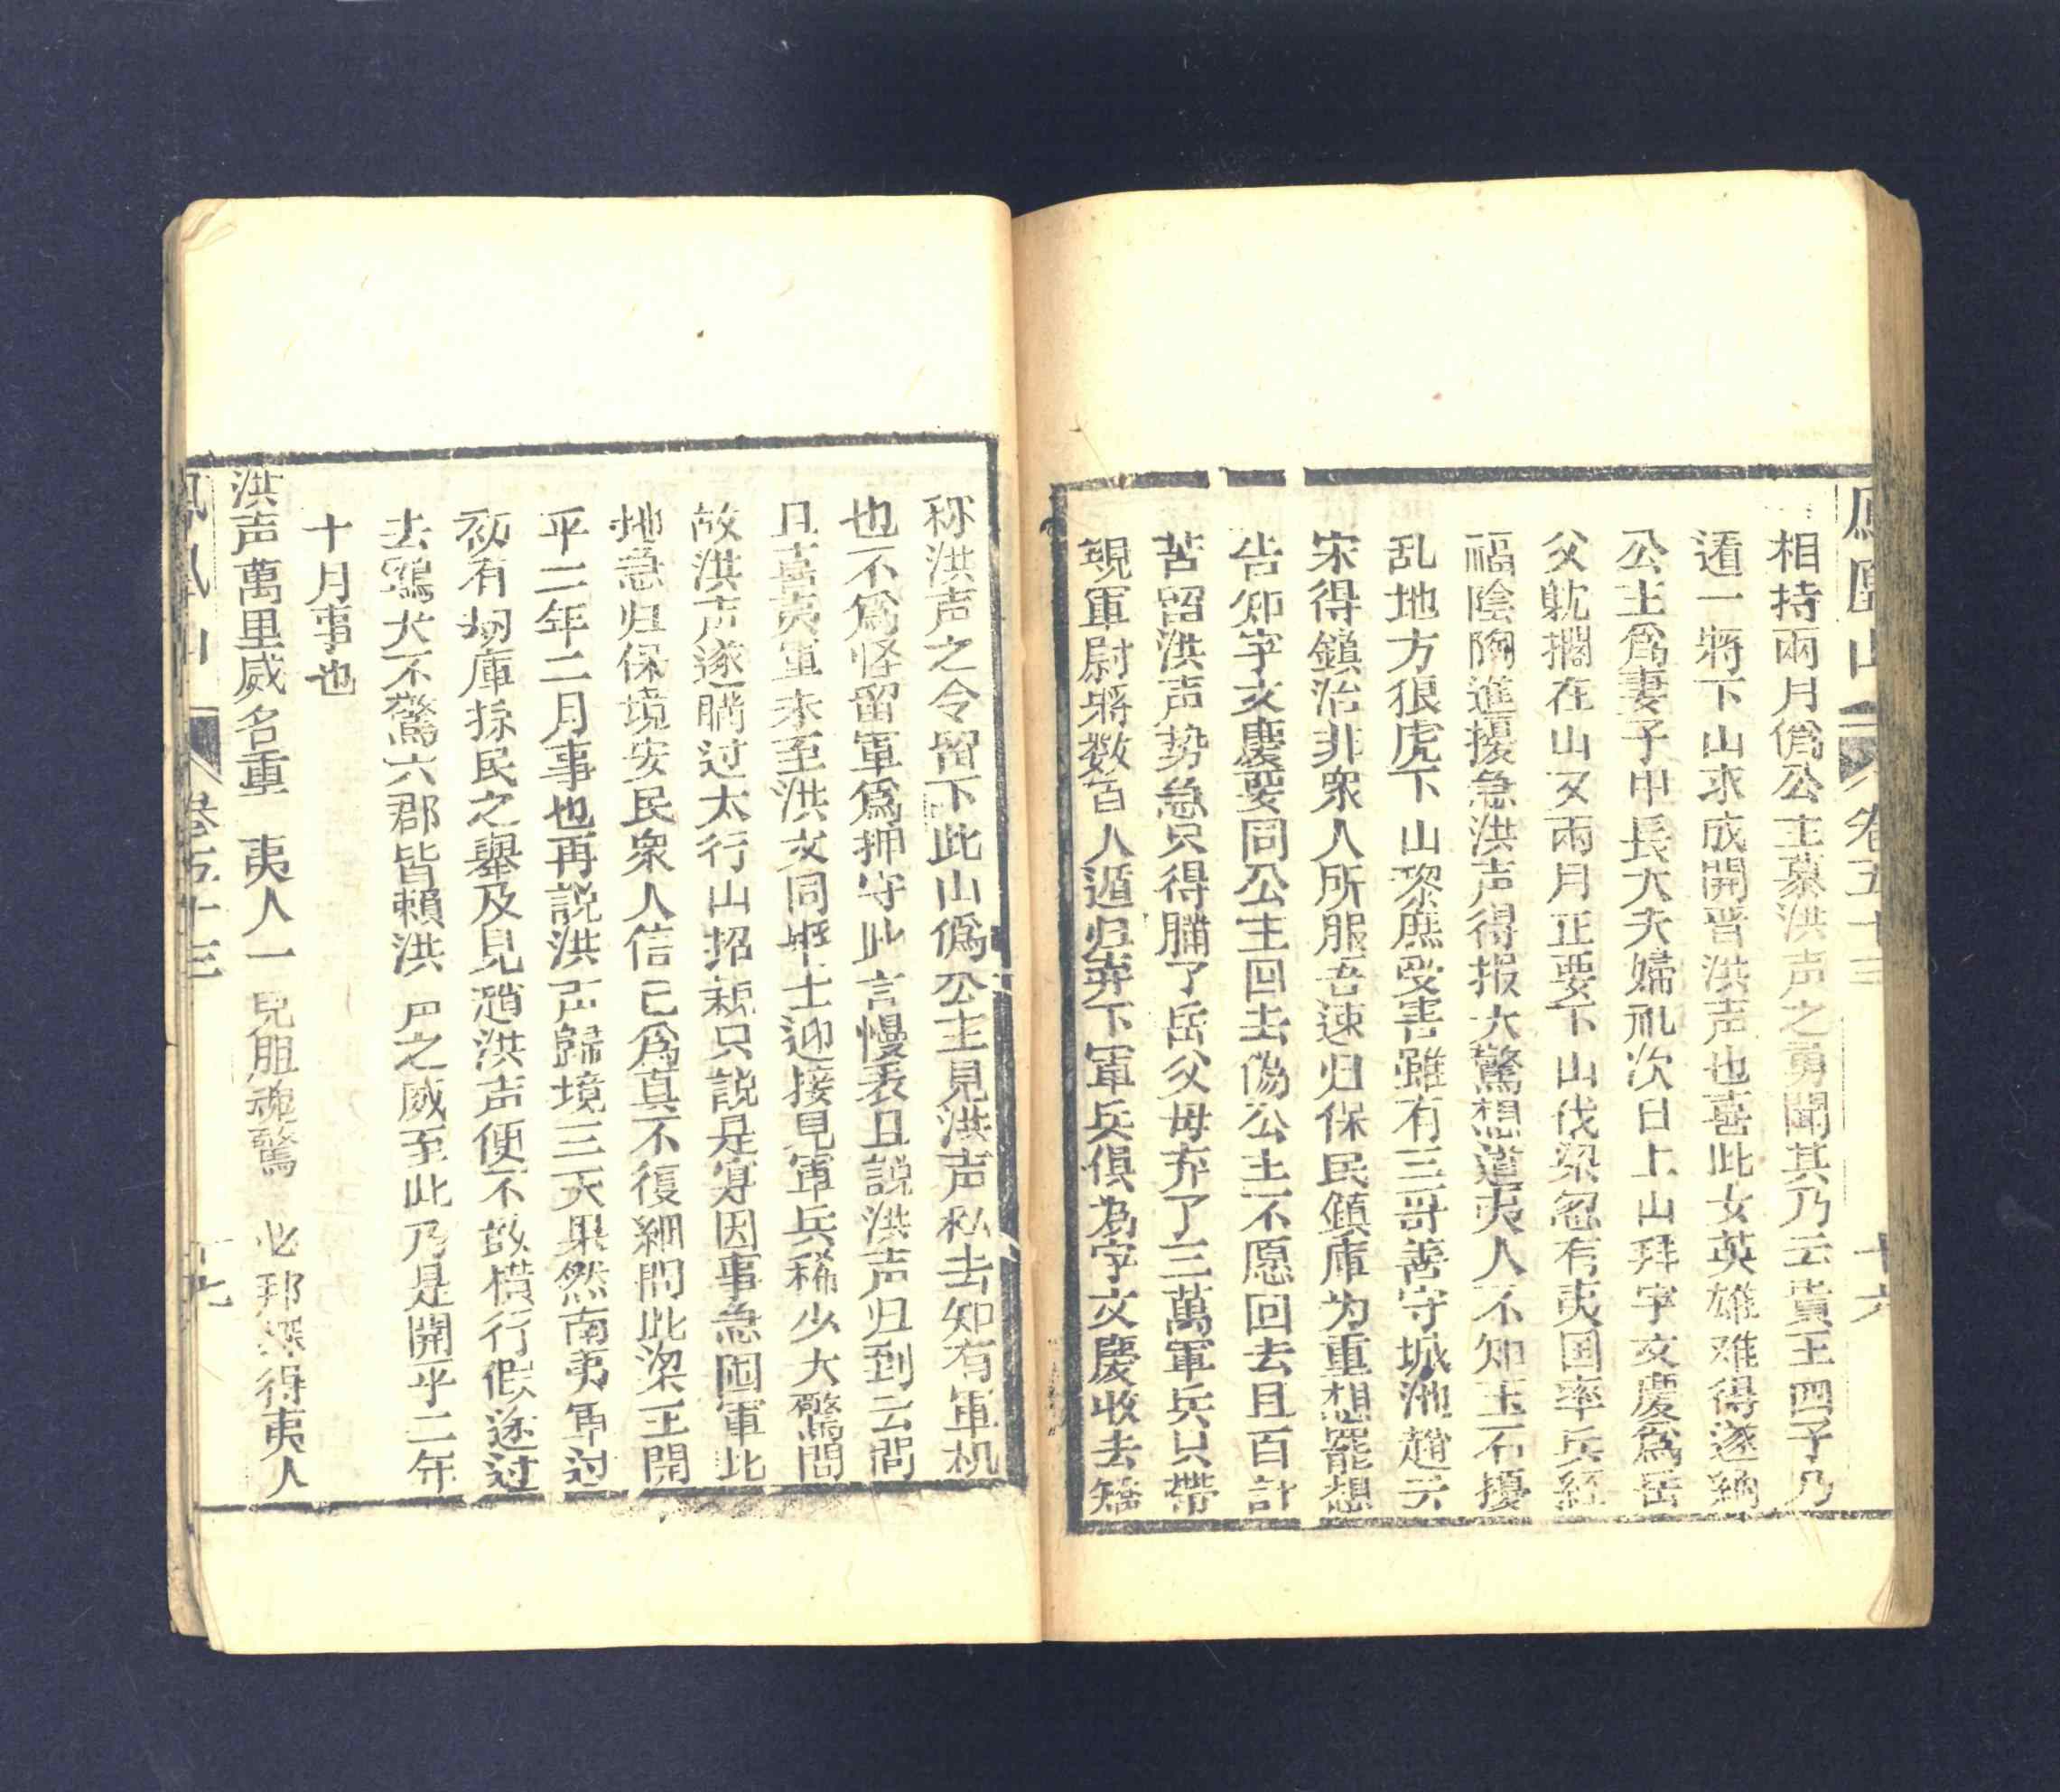 鳳凰山 卷五十三 十六
相持兩月偽公主慕洪声之勇聞其乃云貴王四子乃
遣一將下山求成開晋洪声也喜此女英雄难得遂納
公主爲妻子中長大夫婦礼次日上山拜字文慶爲岳
父躭擱在山又兩月正要下山伐梁忽有夷国率兵經
福陰陶進擾急洪声得报大驚想道夷人不知玉石擾
乱地方狼虎下山黎庶受害雖有三哥善守城池趙天
宋得鎮治非衆人所服吾速归保民鎮庫为重想罷想
告知字文慶要同公主回去偽公主不愿回去且百計
苦留洪声势急只得瞞了岳父毋弃了三萬軍兵只帶
親軍尉將数百人遁归弃下軍兵俱為字文慶收去矯
称洪声之令留下此山偽公主見洪声私去知有軍机
也不爲怪留軍爲押守此言慢表且説洪声归到云間
且喜夷軍未至洪文同 士迎接見軍兵稀少大驚問
故洪声遂瞒过太行山招親只説是寡因事急囤軍此
地急归保境安民衆人信已爲真不復細問此梁王開
平二年二月事也再説洪声歸境三天果然南夷軍过
初有刼庫掠民之舉及見趙洪声便不敢橫行假途过
去鷄犬不驚六郡皆賴洪声之威至此乃是開平二年
十月事也
洪声萬里威名重 夷人一見胆魂驚 必邦 得夷人
鳳凰山 卷五十三 十七